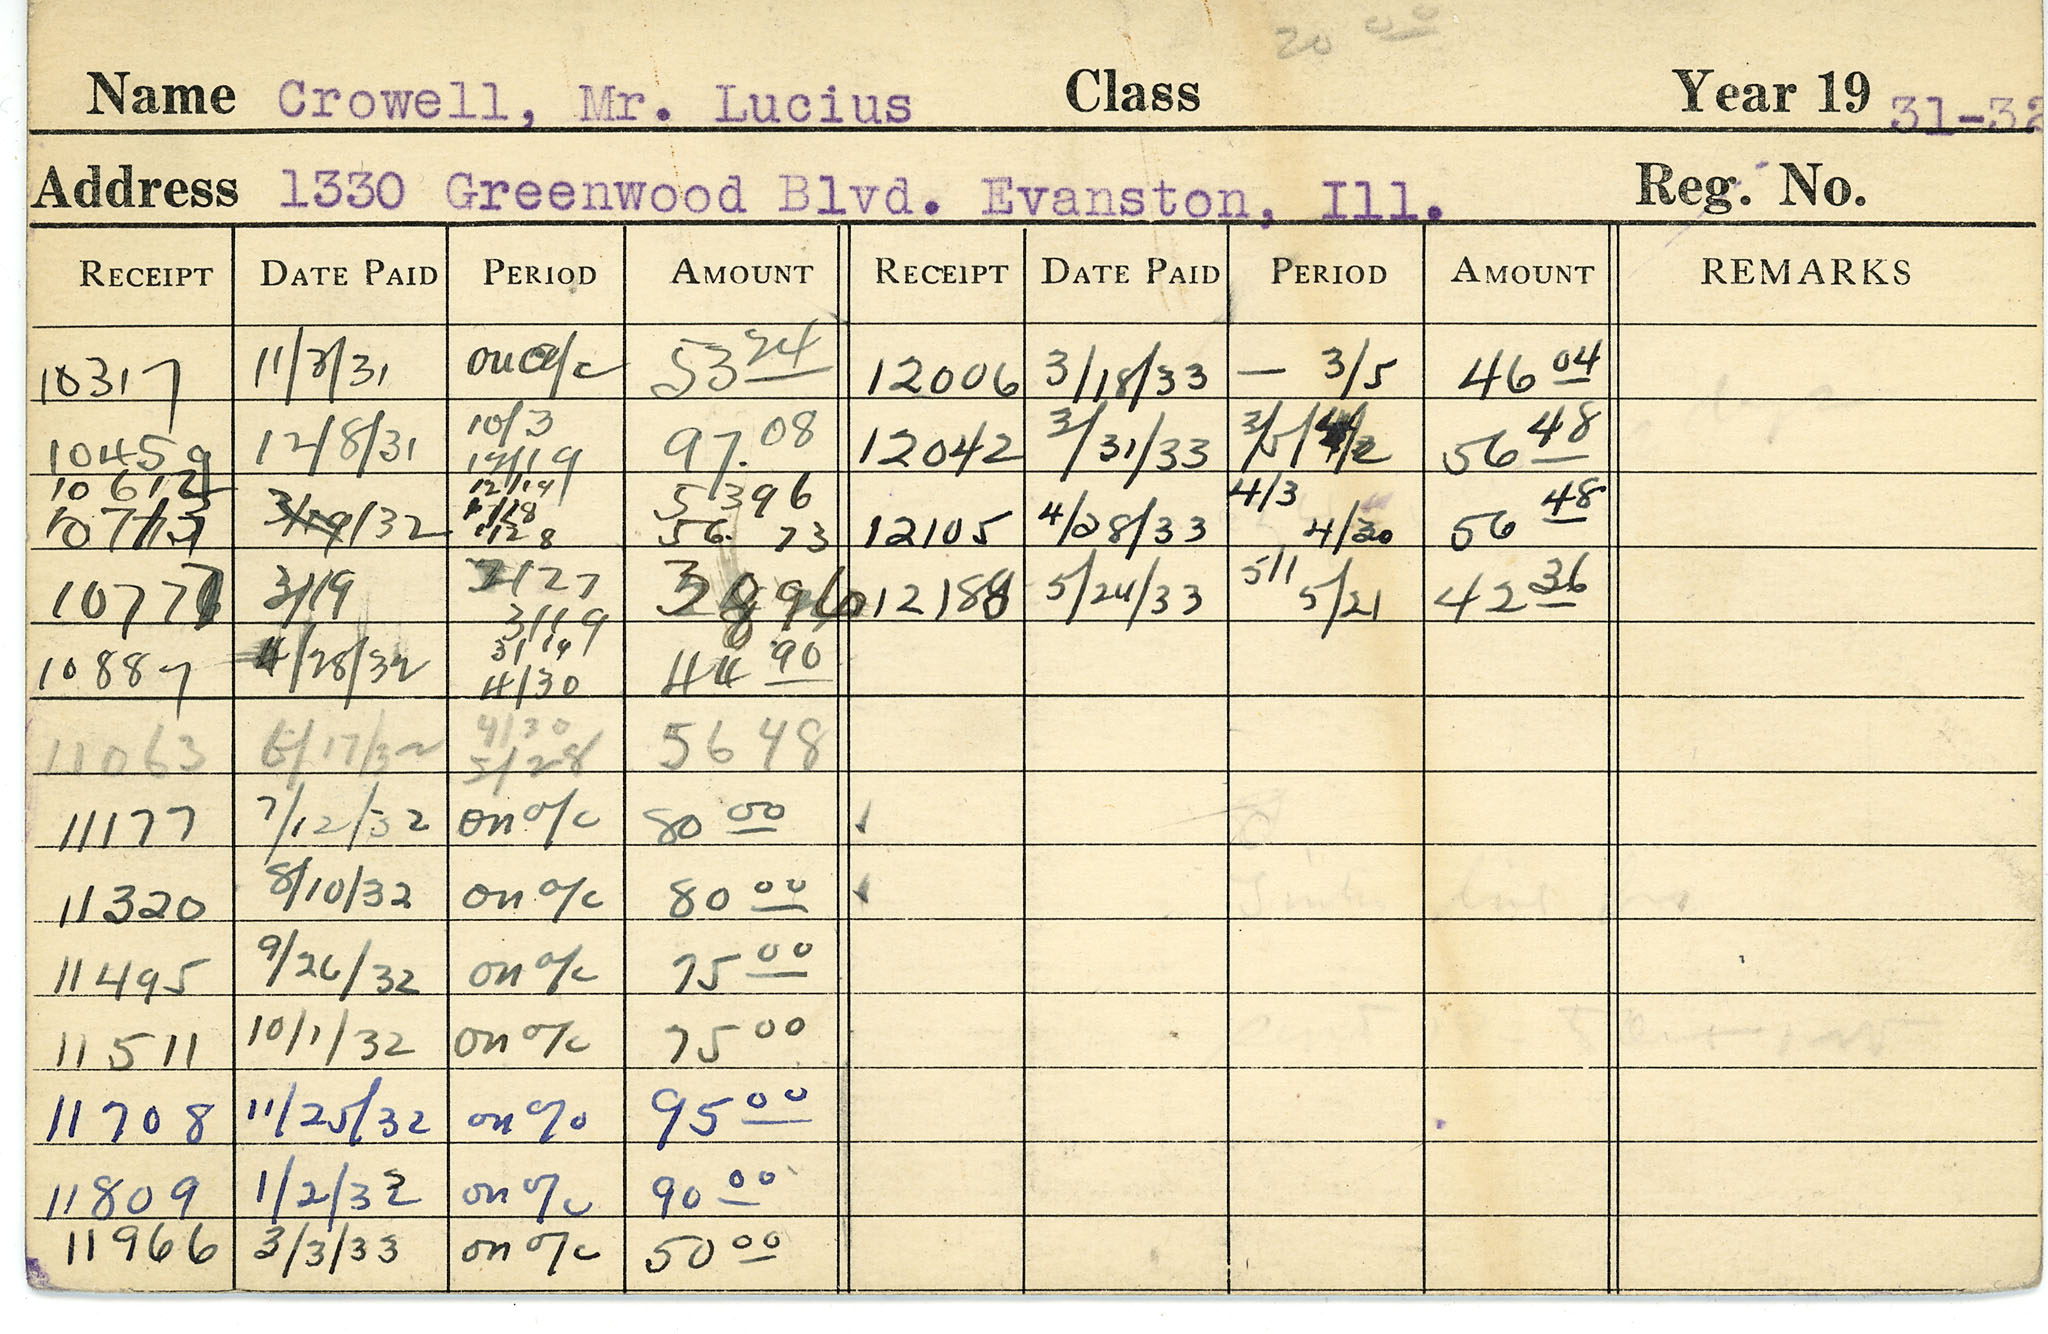 20 00
Name Crowell, Mr. Lucius Class Year 19 31-32
Address 1330 Greenwood Blvd. Evanston, Ill. Reg. No.
RECEIPT DATE PAID PERIOD AMOUNT RECEIPT DATE PAID PERIOD AMOUNT REMARKS
10317 11/3/31 on a/c 53 24 12006 3/18/33 — 3/5 46 04
10459 12/8/31 10/3 12/19 97.08 12042 3/31/33 3/5/4/2 56 48
10612 12/19 1/18 53 96
10713 /32 1/28 56. 73 12105 4/28/33 4/3 4/30 56 48
10777 3/19 2/27 3/19 38 96 12188 5/24/33 5/1 5/21 42 36
10887 4/28/32 3/19 4/30 44 90
11063 6/17/32 4/30 5/28 56 48
11177 7/12/32 on a/c 80 00
11320 8/10/32 on a/c 80 00
11495 9/26/32 on a/c 75 00
11511 10/1/32 on a/c 75 00
11708 11/25/32 on a/c 95 00
11809 1/2/33 on a/c 90 00
11966 3/3/33 on a/c 50 00